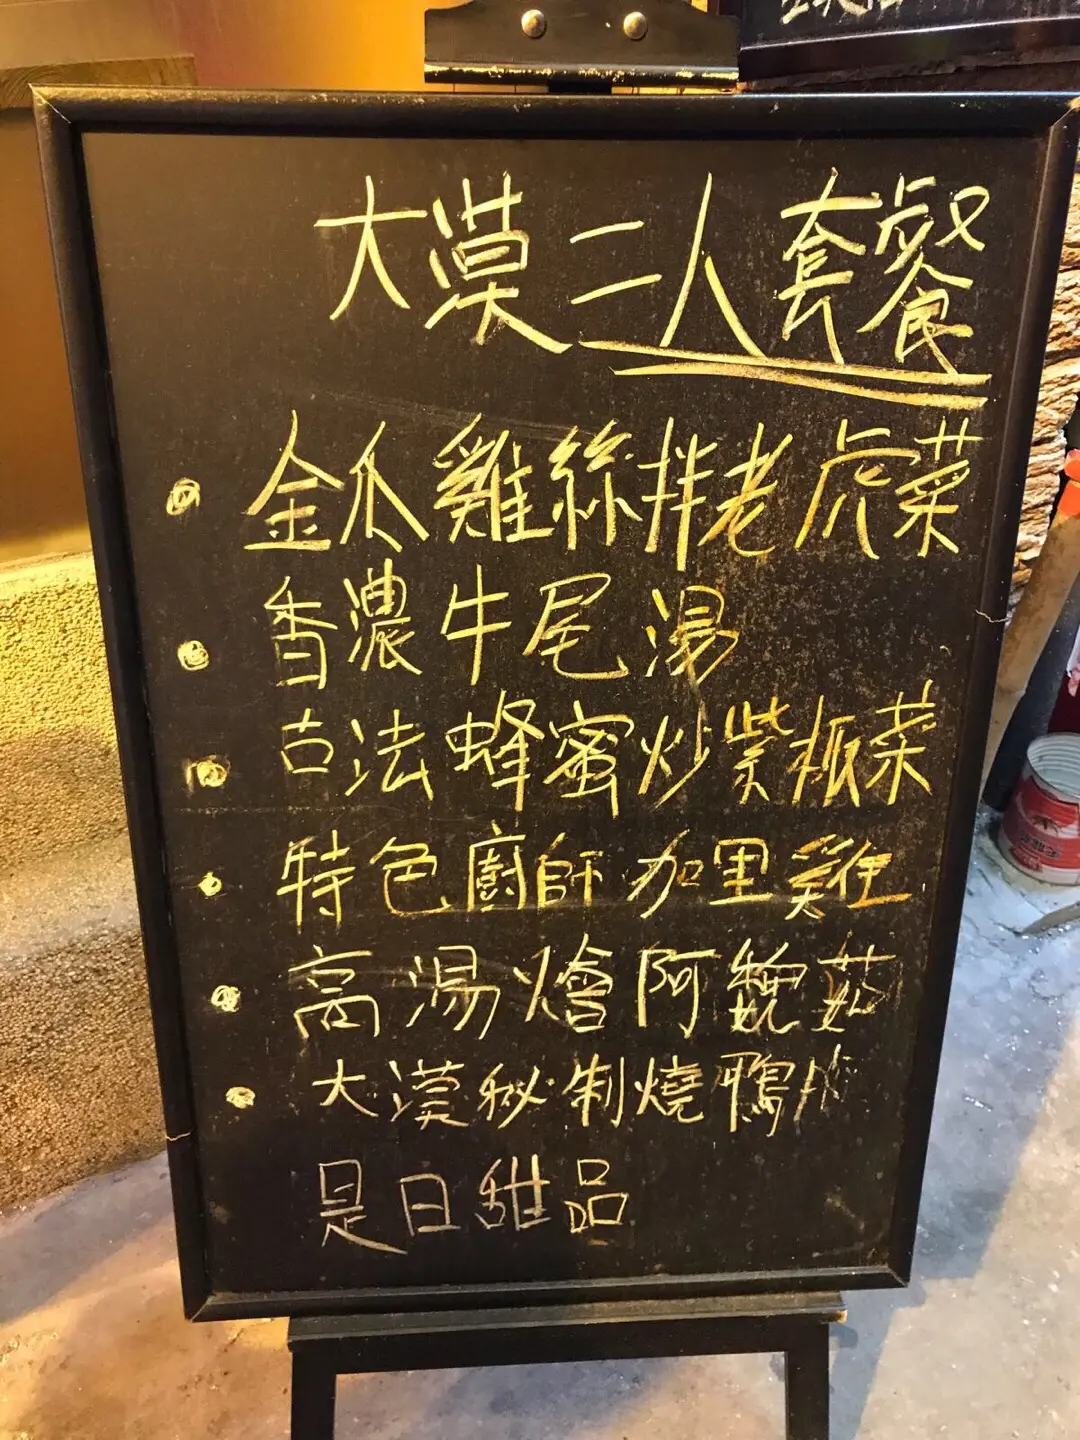 大漠二人套餐
• 金瓜雞絲拌老虎菜
• 香濃牛尾湯
• 古法蜂蜜炒紫板菜
• 特色廚師加里雞
• 高湯燴阿魏菇
• 大漠秘制燒鴨
是日甜品